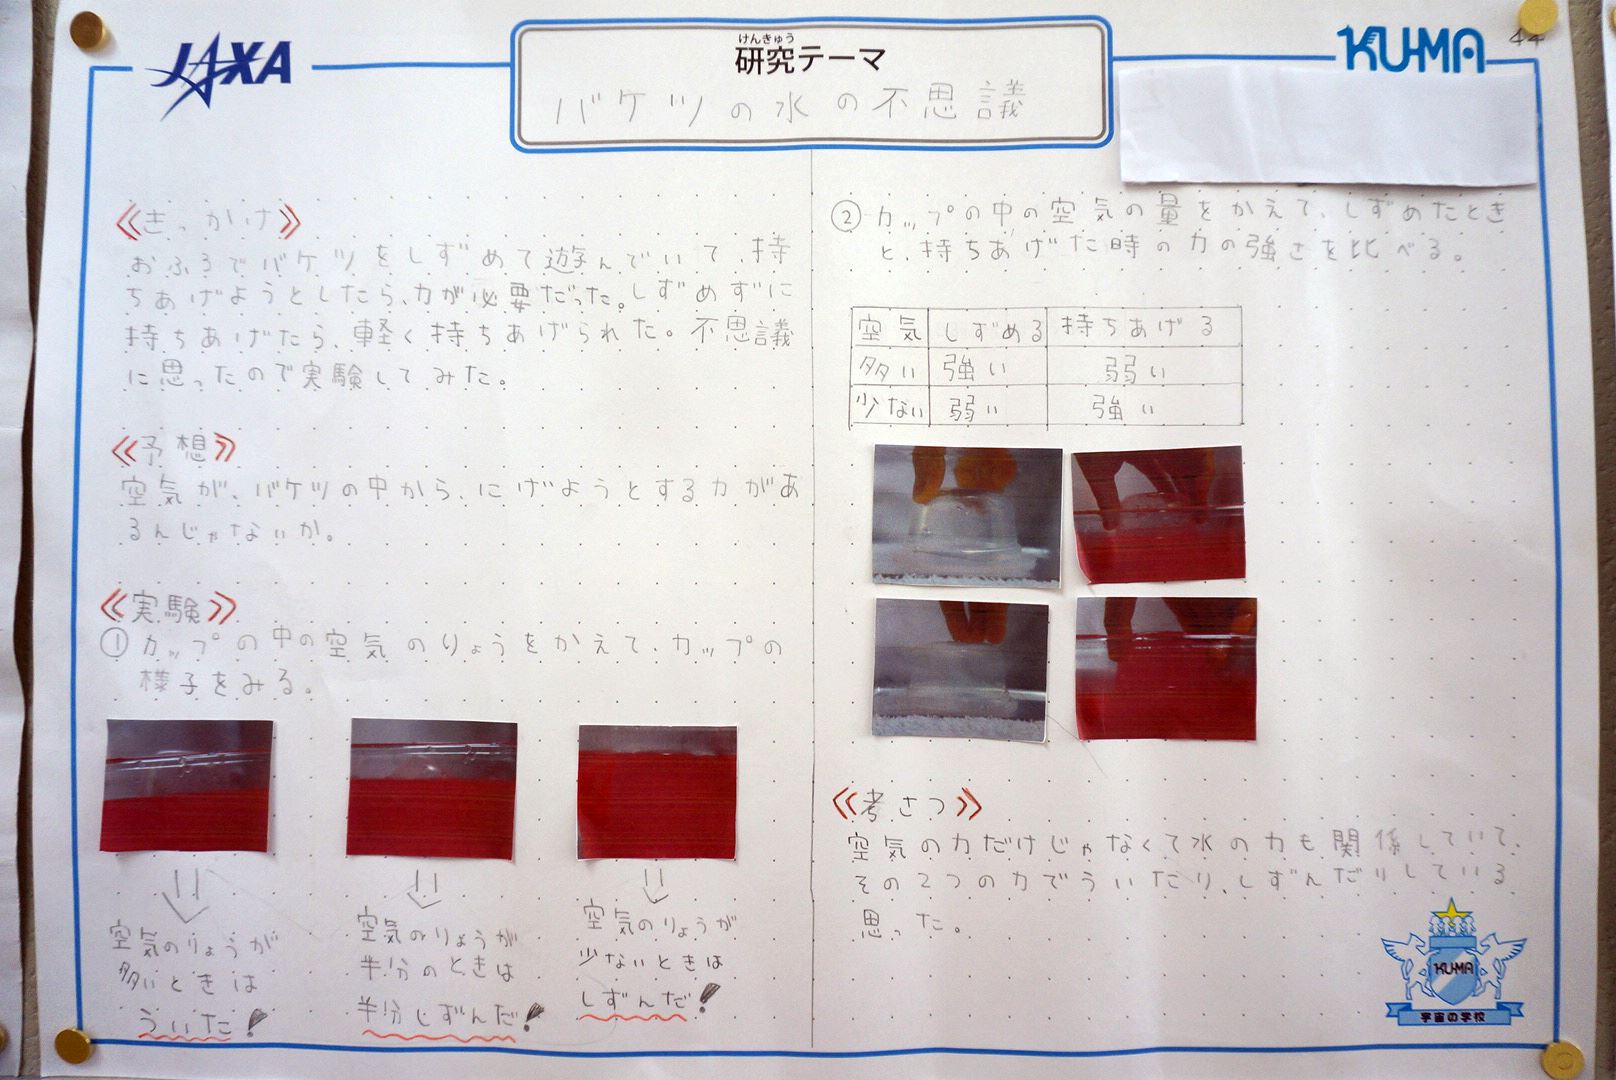 JAXA
けんきゅう
研究テーマ
バケツの水の不思議
KUMA
44
《きっかけ》
おふろでバケツをしずめて遊んでいて、持
ちあげようとしたら、力が必要だった。しずめずに
持ちあげたら、軽く持ちあげられた。不思議
に思ったので実験してみた。
《予想》
空気が、バケツの中から、にげようとする力があ
るんじゃないか。
《実験》
①カップの中の空気のりょうをかえて、カップの
様子をみる。
空気のりょうが
多いときは
ういた!
空気のりょうが
半分のときは
半分しずんだ!
空気のりょうが
少ないときは
しずんだ!
②カップの中の空気の量をかえて、しずめたとき
と、持ちあげた時の力の強さを比べる。
空気 しずめる 持ちあげる
多い 強い 弱い
少ない 弱い 強い
《考さつ》
空気の力だけじゃなくて水の力も関係していて、
その2つの力でういたり、しずんだりしている
思った。
KUMA
宇宙の学校